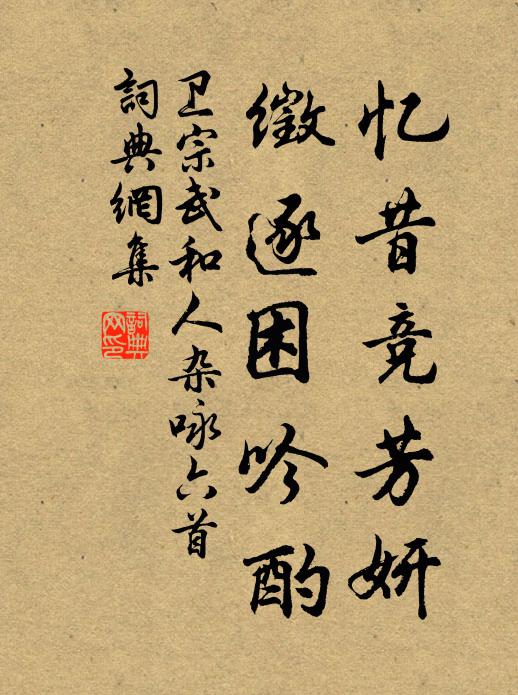 忆昔竞芳妍
徵逐困吟酌
卫宗武和人杂咏六首
詞典網集
詞典网印